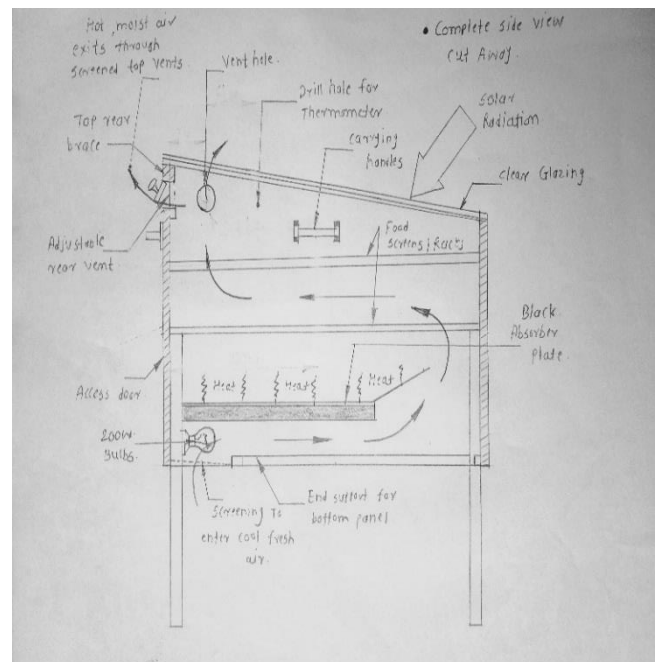 Hot, moist air
exits through
screened top vents.
Vent hole.
• Complete side view
Cut Away.
Drill hole for
Thermometer
Solar
Radiation
Top rear
brace
carrying
handles
clear Glazing
Adjustable
rear vent
Food
Screens/Racks
Black
Absorber
plate.
Heat
Heat
Heat
Access door
200W
Bulbs.
Screening To
enter cool fresh
air.
End support for
bottom panel